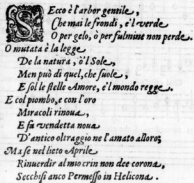 SEcco è l'arbor gentile,
Che mai le frondi, e'l verde
O per gelo, ò per fulmine non perde.
O mutata è la legge
De la natura, ò'l Sole,
Men può di quel, che suole,
E sol le stelle Amore, e'l mondo regge.
E col piombo, e con l'oro
Miracoli rinoua,
E fa vendetta noua
D'antico oltraggio ne l'amato alloro;
Ma se nel lieto Aprile
Rinuerdir al mio crin non dee corona,
Secchisi anco Permesso in Helicona.